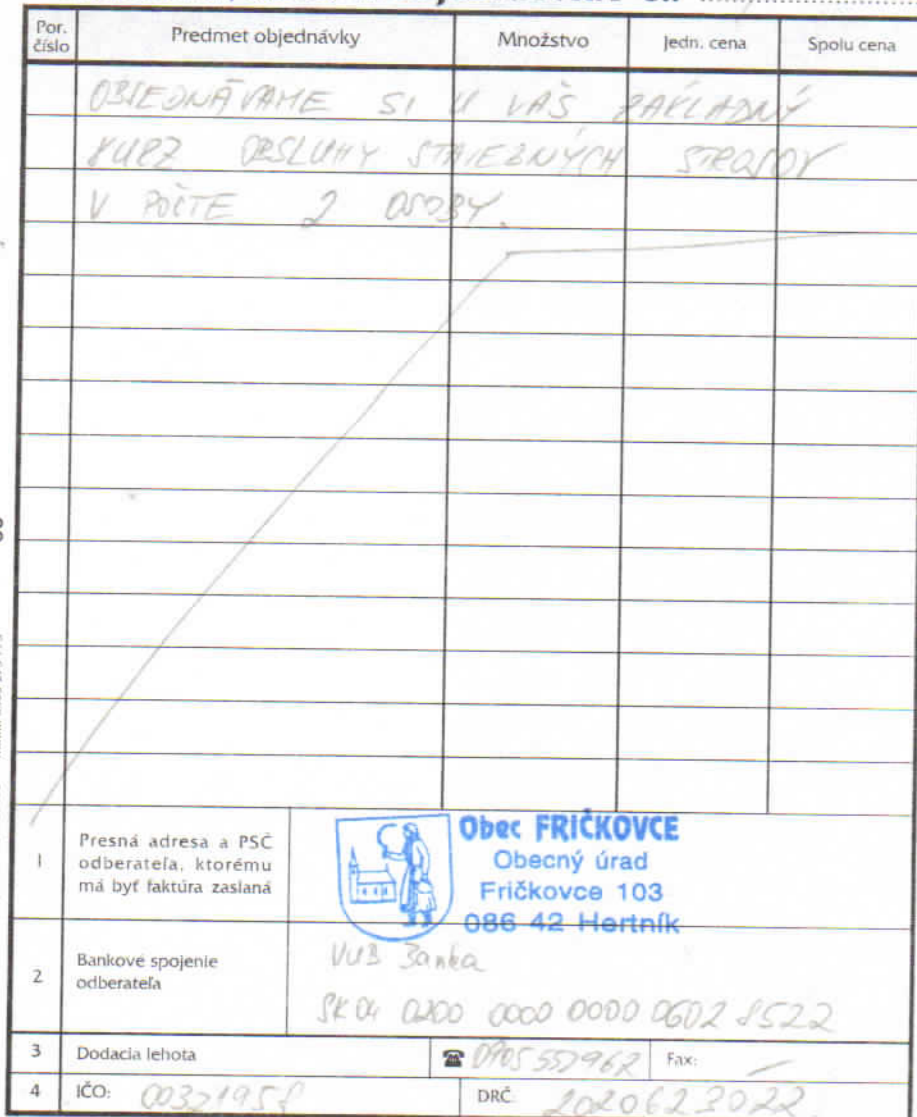 Por. číslo Predmet objednávky Množstvo Jedn. cena Spolu cena
OBJEDNÁVAME SI U VÁS ZÁKLADNÝ
KURZ OBSLUHY STAVEBNÝCH STROJOV
V POČTE 2 OSOBY.
1 Presná adresa a PSČ
odberateľa, ktorému
má byť faktúra zaslaná
Obec FRIČKOVCE
Obecný úrad
Fričkovce 103
086 42 Hertník
2 Bankové spojenie
odberateľa
VUB Banka
SK04 0200 0000 0000 0602 8522
3 Dodacia lehota ☎ 0905 557962 Fax: —
4 IČO: 00321958 DRČ: 2020623022